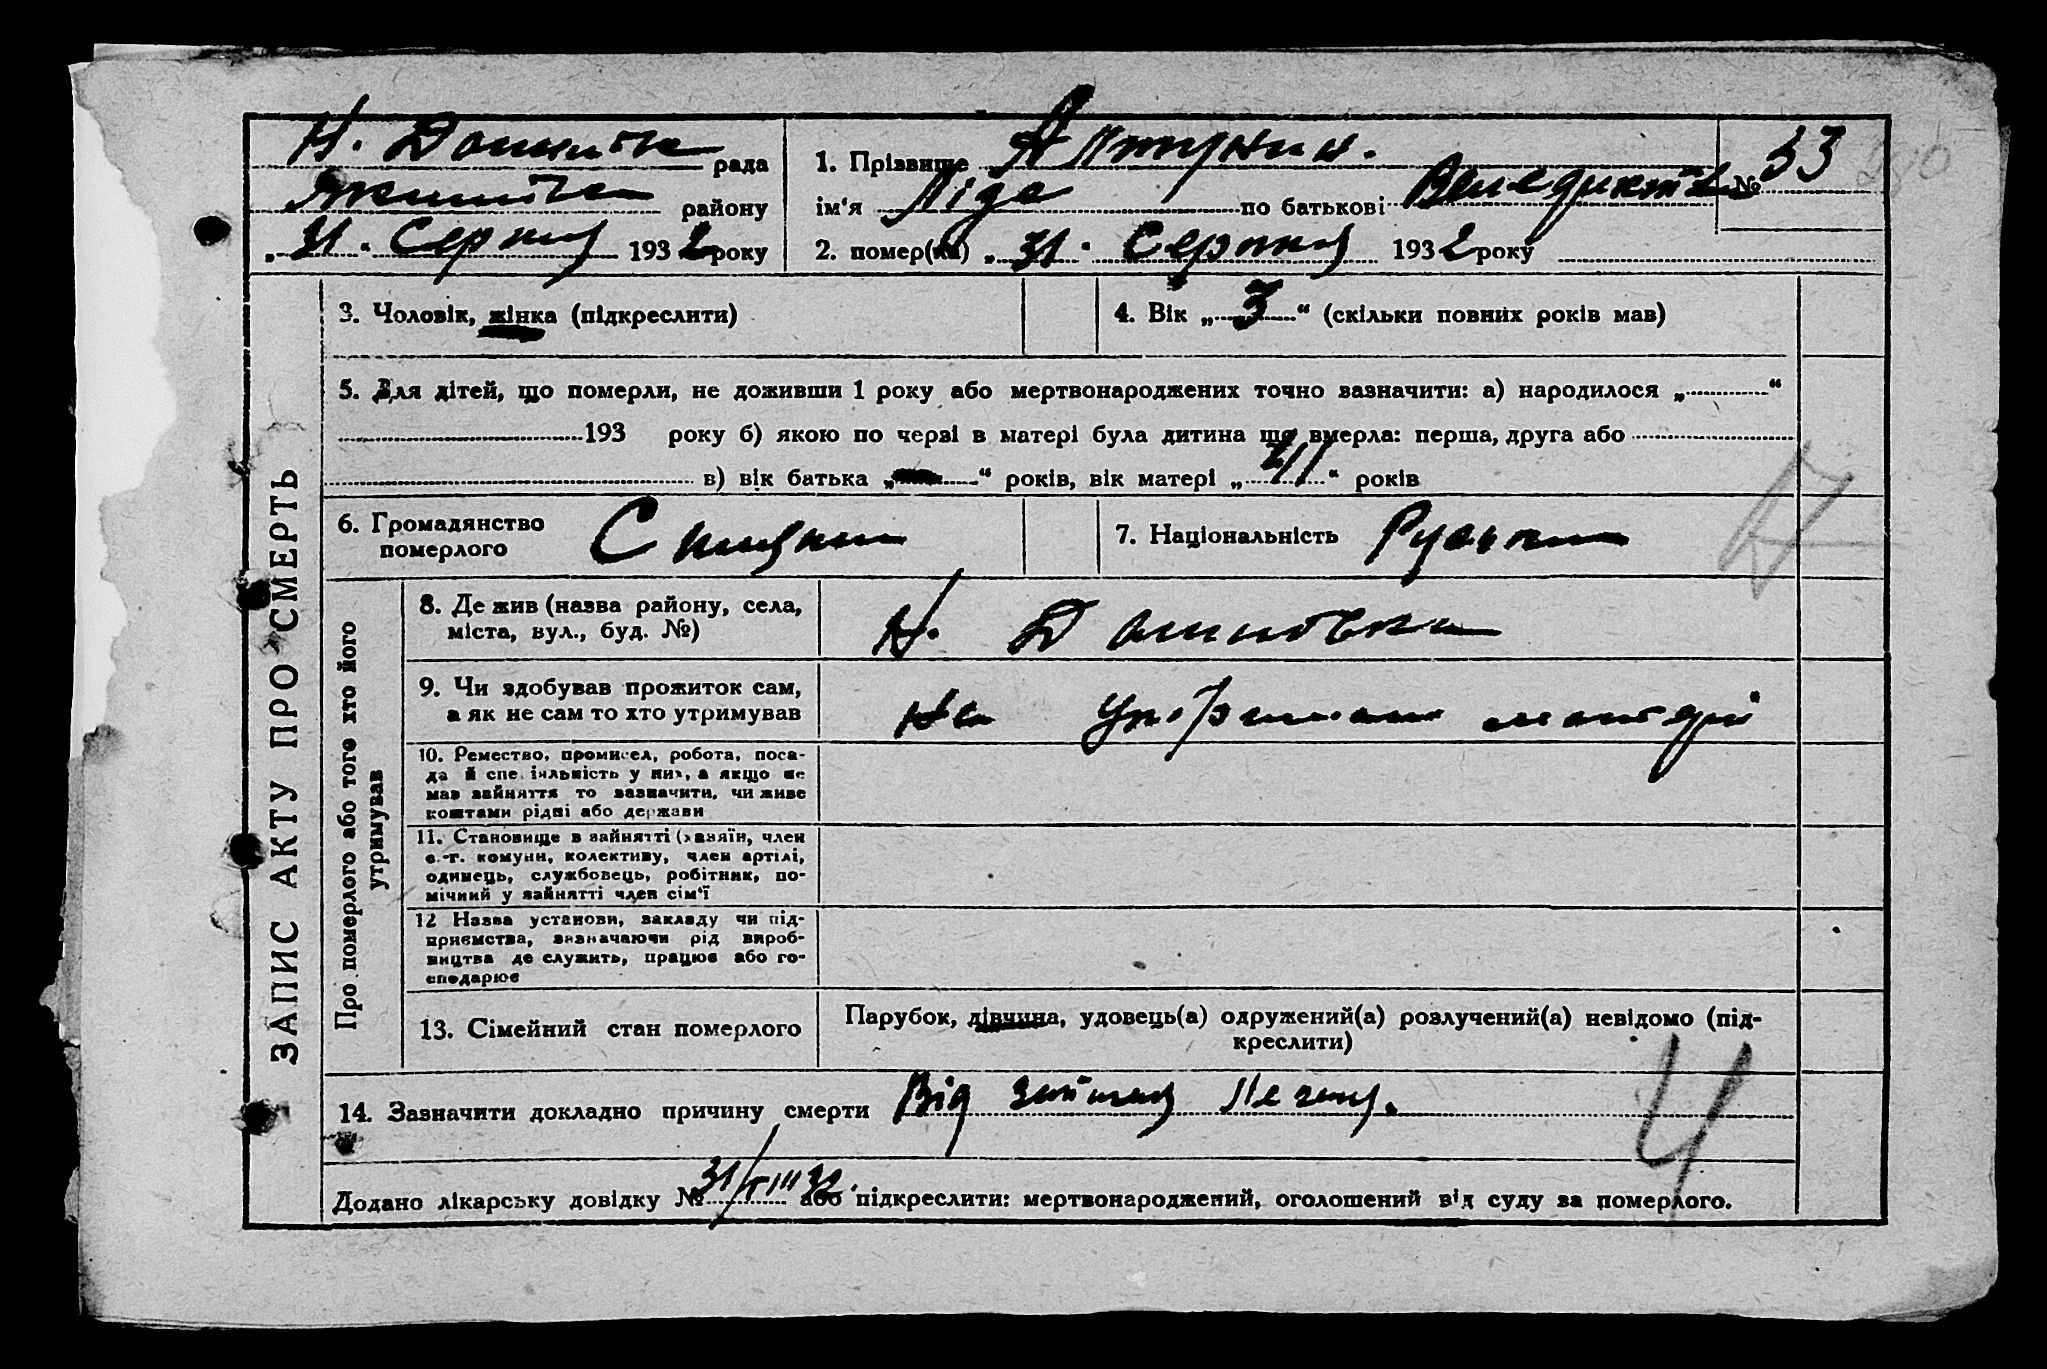 Н. рада
району
„ 31. Серпня 1932 року
1. Прізвище
ім‘я Ліда по батькові
№ 33
2. помер(ла) „ 31. Серпня 1932 року
3. Чоловік, жінка (підкреслити)
4. Вік „ 3 “ (скільки повних років мав)
5. Для дітей, що померли, не доживши 1 року або мертвонароджених точно зазначити: а) народилося „ “
193 року б) якою по черзі в матері була дитина що вмерла: перша, друга або
в) вік батька „ “ років, вік матері „ 41 “ років
6. Громадянство
померлого
7. Національність Руська
8. Де жив (назва району, села,
міста, вул., буд. №)
Н.
9. Чи здобував прожиток сам,
а як не сам то хто утримував
на матері
10. Ремество, промисел, робота, поса-
да й спеціяльність у них, а якщо не
мав зайняття то зазначити, чи живе
коштами рідні або держави
11. Становище в зайнятті (хазяїн, член
с.-г. комуни, колективу, член артілі,
одинець, службовець, робітник, по-
мічний у зайнятті член сім‘ї
12 Назва установи, закладу чи під-
приємства, зазначаючи рід вироб-
ництва де служить, працює або го-
сподарює
13. Сімейний стан померлого
Парубок, дівчина, удовець(а) одружений(а) розлучений(а) невідомо (під-
креслити)
14. Зазначити докладно причину смерти Від
Додано лікарську довідку № 31/VIII 32. або підкреслити: мертвонароджений, оголошений від суду за померлого.
ЗАПИС АКТУ ПРО СМЕРТЬ
Про померлого або того хто його
утримував